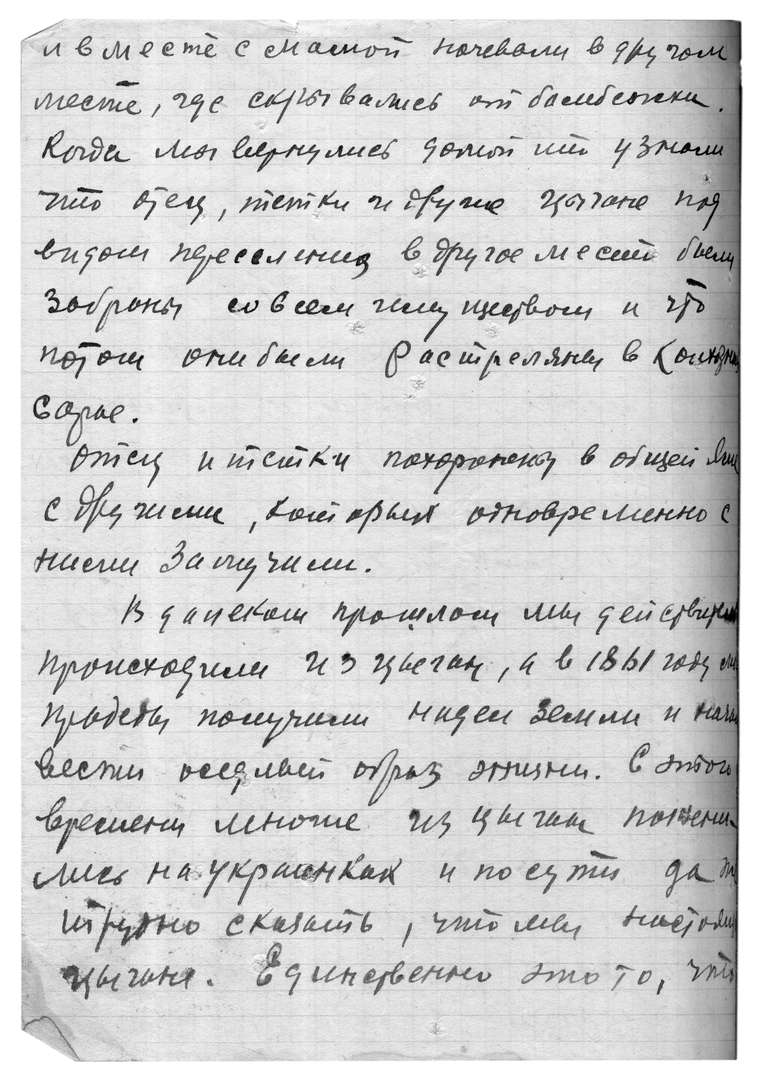 и вместе с мамой ночевали в другом
месте, где скрывались от бомбежки.
Когда мы вернулись домой то узнали
что отец, тетки и другие цыгане под
видом переселения в другое место были
забраны со всем имуществом и что
потом они были расстреляны в
сарае.
Отец и тетки похоронены в общей яме
с другими, которых одновременно с
ними замучили.
В далеком прошлом мы действител
происходили из цыган, а в 1861 году
прадеды получили надел земли и начал
вести оседлый образ жизни. С этого
времени многие из цыган пожени-
лись на украинках и по сути да
трудно сказать, что мы настоящ
цыгане. Единственно это то, что